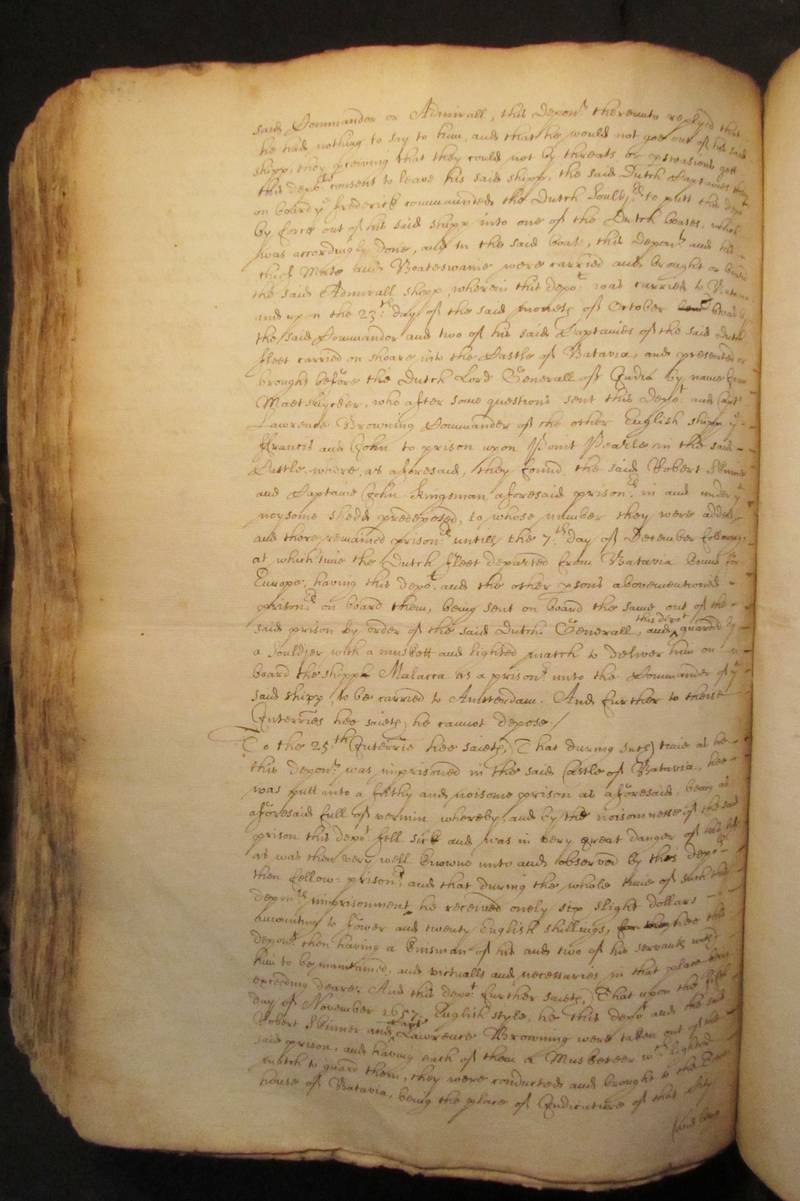 said Commandor or Admirall, this depon.t thereunto replyed that
he had nothing to say to him, and that he would not goe out of his said
shipp, they p'ceiving that they could not by threats or p'swasions gett
this depo.ts consent to leave his said shipp, the said Dutch Captaines
on board y.e Frederick commanded the Dutch Souldj.rs to putt this depo.t
by force out of his said shipp into one of the Dutch boates, which
was accordingly done, and in the said boat, this Depon.t and his
chief Mate and Boateswaine were carried and brought on board
the said Admirall shipp, wherein this depo.t was carried to Batavia
and upon the 23.th day of the said moneth of October
the said Commandor and two of his said Captaines of the said Dutch
fleet carried on shoare into the Castle of Batavia, and presented or
brought before the Dutch Lord Generall of India by name
Maetsuycker, who after some questions sent this Depo.t and Capt
Lawrence Browning Commander of the other English shipp y.e
Francis and John to prison upon Point Pearle in the said
Castle, where, as aforesaid, they found the said Robert Skinner
and Captaine John Kingsman aforesaid prison.rs in and under y.e
noysome shedd predeposed, to whose number they were added,
and there remained prison.rs untill the 7.th day of December following
at which time the Dutch fleet departed from Batavia bound for
Europe, having this depo.t and the other p'sons abovementioned
prison.rs on board them, being sent on board the same out of the
said prison by order of the said Dutch Generall, and this depo.t guarded by
a souldjer with a muskett and lighted match to deliver him on
board the shipp Malacca as a prison.r unto the Commander of y.e
said shipp, to be carried to Amsterdam. And further to these
Interries hee saieth, he cannot depose /
To the 25.th Interrie hee saieth, That during such time as he
this depon.t was imprisoned in the said Castle of Batavia, hee
was putt into a filthy and noisome prison as aforesaid, being as
aforesaid full of vermin, whereby, and by the noisomnesse of the said
prison this depo.t fell sick and was in very great danger of his life
as was then very well knowne unto and observed by this depo.ts
then fellow-prison.rs and that during the whole time of such his
depon.ts imprisonment he received onely six slight dollars
amounting to fower and twenty English shillings, hee this
depon.t then having a kinsman of his and two of his servants with
him to be maintained, and victualls and necessaries in that place being
exceeding deare. And this depo.t further saieth, That upon the
day of November 1657. English style, he this depo.t and the said
Robert Skinner and Capt Lawrence Browning were taken out of the
said prison, and having each of them a Musketeer w.th lighted
match to guard them, they were conducted and brought to the
house of Batavia, being the place of Iudicature of that City